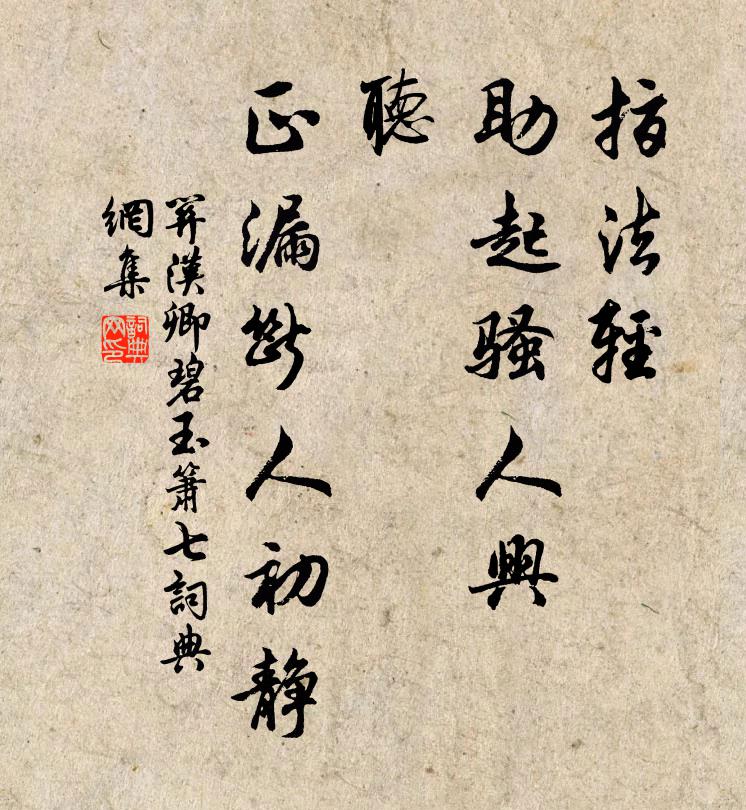 指法輕
助起騷人興
聽
正漏斷人初静
关漢卿碧玉簫七詞典
網集
詞典
网印